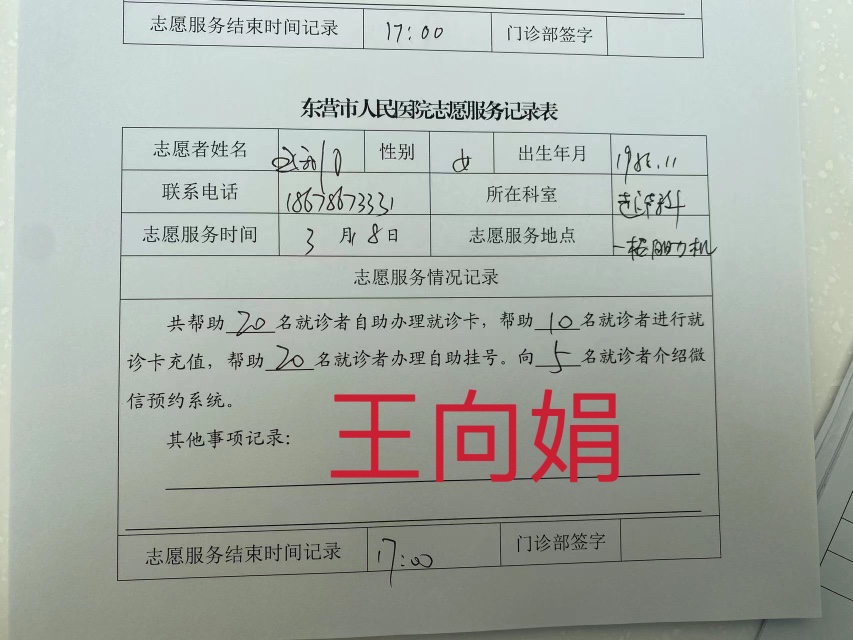 志愿服务结束时间记录 17:00 门诊部签字
东营市人民医院志愿服务记录表
志愿者姓名 性别 女 出生年月 1986.11
联系电话 18678673331 所在科室
志愿服务时间 3月8日 志愿服务地点 一楼自助机
志愿服务情况记录
共帮助20名就诊者自助办理就诊卡，帮助10名就诊者进行就
诊卡充值，帮助20名就诊者办理自助挂号。向5名就诊者介绍微
信预约系统。
其他事项记录：
王向娟
志愿服务结束时间记录 17:00 门诊部签字